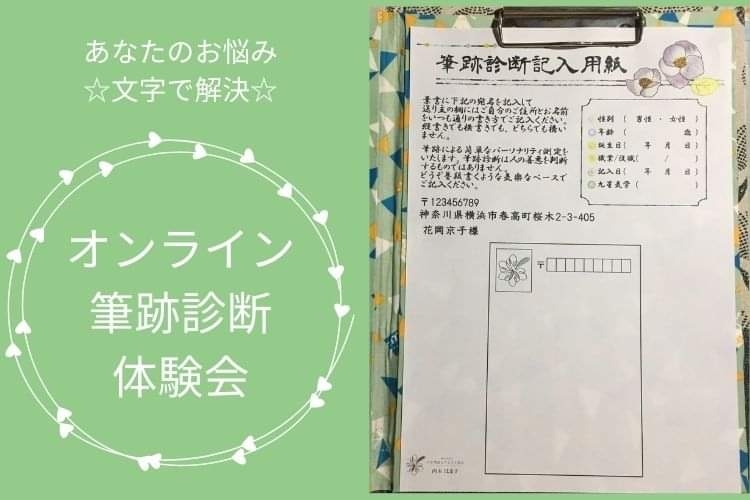 あなたのお悩み
☆文字で解決☆
オンライン
筆跡診断
体験会
筆跡診断記入用紙
葉書に下記の宛名を記入して
送り主の欄にはご自分のご住所とお名前
をいつも通りの書き方でご記入ください。
縦書きでも横書きでも、どちらでも構い
ません。
筆跡による簡単なパーソナリティ測定を
いたします。筆跡診断は人の善悪を判断
するものではありません。
どうぞ普段書くような気楽なペースで
ご記入ください。
性別 ( 男性 ・ 女性 )
年齢 ( 歳 )
誕生日( 年 月 日 )
職業/役職( / )
記入日( 年 月 日 )
九星気学 ( )
〒123456789
神奈川県横浜市春高町桜木2-3-405
花岡京子様
〒